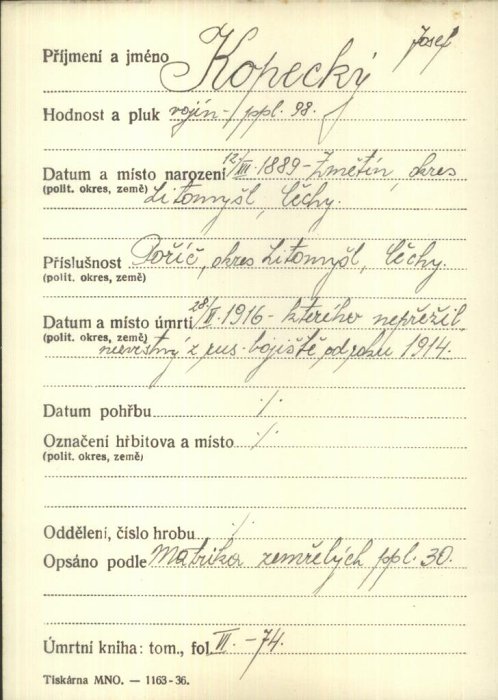 Příjmení a jméno Kopecký Josef
Hodnost a pluk vojín-/ppl. 98.
Datum a místo narození 12./III. 1889 - Změtín, okres
(polit. okres, země) Litomyšl, Čěchy.
Příslušnost Poříč, okres Litomyšl, Čěchy.
(polit. okres, země)
Datum a místo úmrtí 28./II. 1916 - kterého nepřežil,
(polit. okres, země) nezvěstný z rus. bojiště od roku 1914.
Datum pohřbu ./.
Označení hřbitova a místo ./.
(polit. okres, země)
Oddělení, číslo hrobu ./.
Opsáno podle Matrika zemřelých ppl. 30.
Úmrtní kniha: tom., fol. VI. - 74.
Tiskárna MNO. — 1163-36.